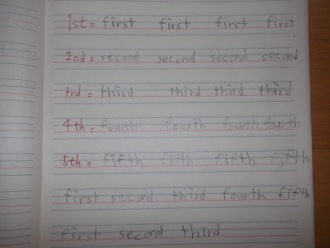 1st = first first first first
2nd = second second second second
3rd = third third third third
4th = fourth fourth fourth fourth
5th = fifth fifth fifth fifth
first second third fourth fifth
first second third